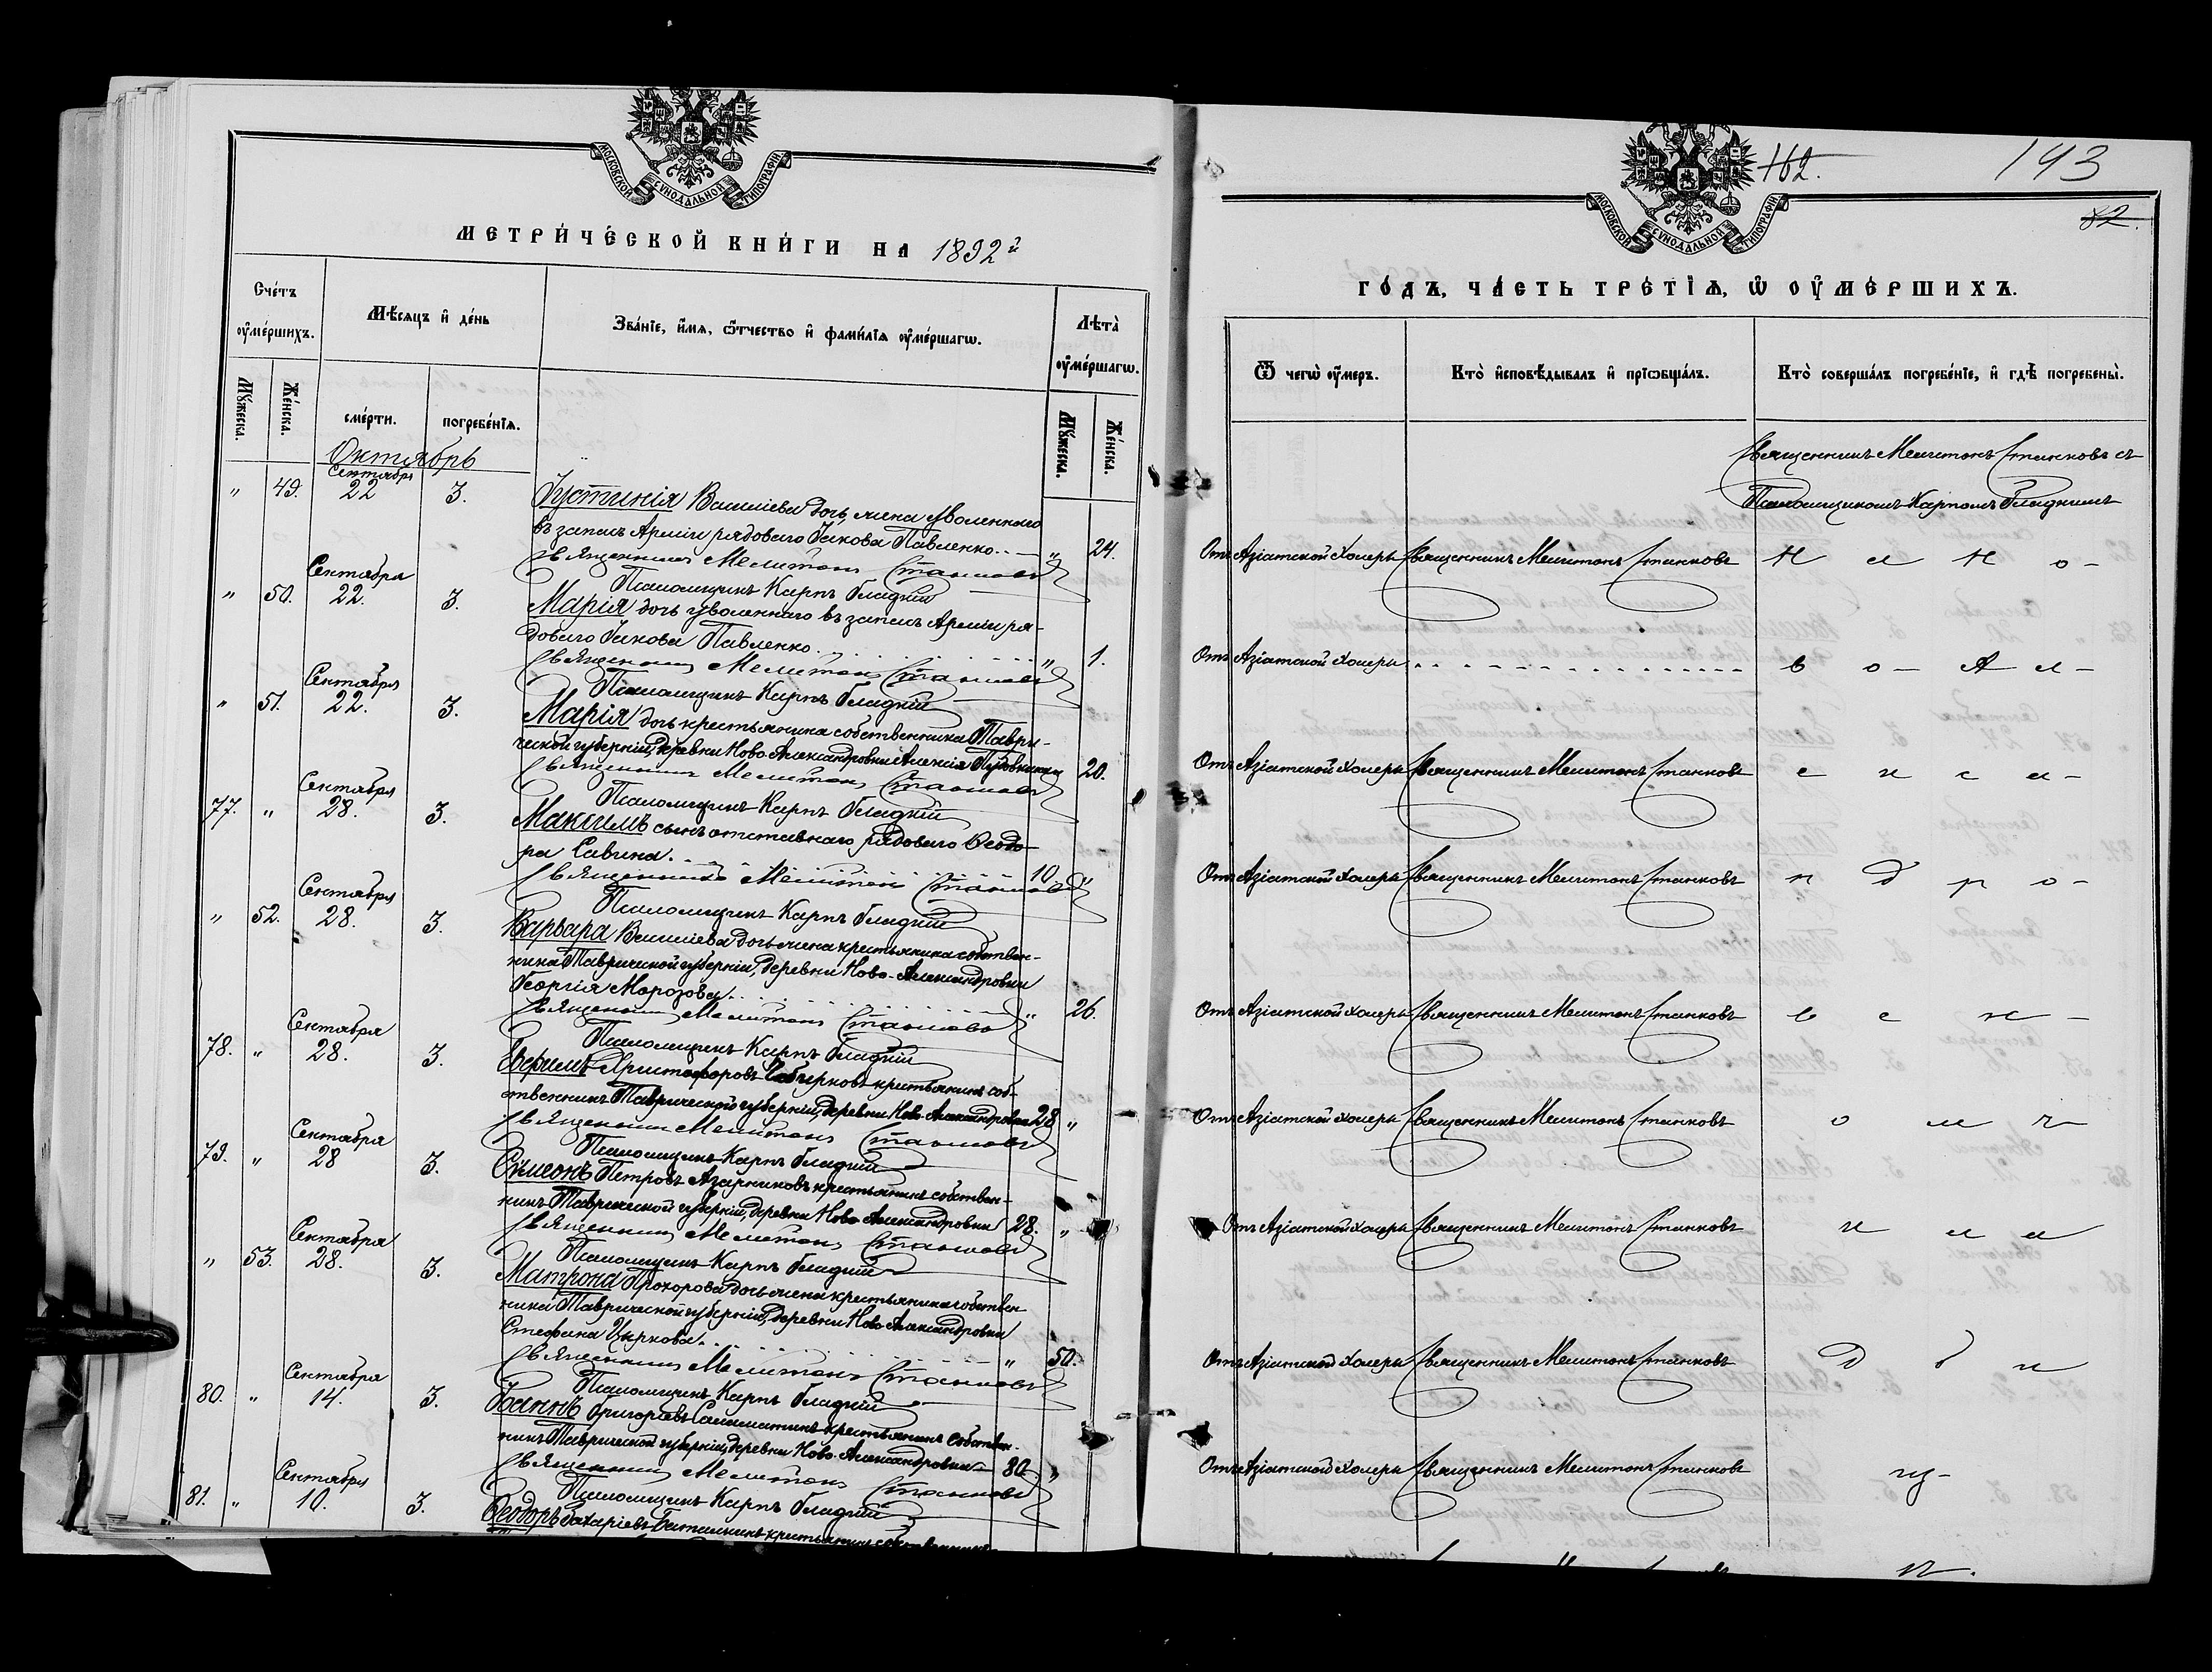 МОСКОВСКОЙ СУНОДАЛЬНОЙ ТИПОГРАФІИ
МЕТРИ́ЧЕСКОЙ КНИ́ГИ НА 1892й
Сче́тъ оу҆ме́ршихъ.
Мѣ́сяцъ и҆ де́нь
Зва́нїе, и҆́мѧ, ѻ҆́тчество и҆ фами́лїѧ оу҆ме́ршагѡ.
Лѣта̀ оу҆ме́ршагѡ.
Мꙋ́жеска.
Же́нска.
сме́рти.
погребе́нїѧ.
Мꙋ́жеска.
Же́нска.
Октябрь
" 49. Сентября 22 3. Іустинія Василіева дочь, жена уволеннаго
въ запасъ Арміи рядоваго Іакова Павленко. " 24.
Священникъ Мелитонъ Станковъ
Псаломщикъ Карпъ Гладкій
" 50. Сентября 22. 3. Марія дочь уволеннаго въ запасъ Арміи ря-
доваго Іакова Павленко. " 1.
Священникъ Мелитонъ Станковъ
Псаломщикъ Карпъ Гладкій
" 51. Сентября 22. 3. Марія дочь крестьянина собственника Таври-
ческой губерніи, деревни Ново-Александровки Алексія 20.
Священникъ Мелитонъ Станковъ
Псаломщикъ Карпъ Гладкій
77. " Сентября 28. 3. Максимъ сынъ отставнаго рядоваго Ѳеодо-
ра Савина. 10 "
Священникъ Мелитонъ Станковъ
Псаломщикъ Карпъ Гладкій
" 52. Сентября 28. 3. Варвара Василіева дочь жена крестьянина собствен-
ника Таврической губерніи, деревни Ново-Александровки
Георгія Морозова. " 26.
Священникъ Мелитонъ Станковъ
Псаломщикъ Карпъ Гладкій
78. " Сентября 28. 3. Ефимъ Христофоровъ крестьянинъ соб-
ственникъ Таврической губерніи, деревни Ново-Александровки 28 "
Священникъ Мелитонъ Станковъ
Псаломщикъ Карпъ Гладкій
79. " Сентября 28 3. Сѵмеонъ Петровъ Азарниковъ крестьянинъ собствен-
никъ Таврической губерніи, деревни Ново-Александровки 28. "
Священникъ Мелитонъ Станковъ
Псаломщикъ Карпъ Гладкій
" 53. Сентября 28. 3. Матрона Прохорова дочь жена крестьянина собствен
ника Таврической губерніи, деревни Ново-Александровки
Стефана Цыркова. " 50.
Священникъ Мелитонъ Станковъ
Псаломщикъ Карпъ Гладкій
80. " Сентября 14. 3. Іоаннъ Григоріевъ Саламатинъ крестьянинъ собствен-
никъ Таврической губерніи, деревни Ново-Александровки 80. "
Священникъ Мелитонъ Станковъ
Псаломщикъ Карпъ Гладкій
81. " Сентября 10. 3. Ѳеодоръ Захаріевъ крестьянинъ собственникъ
МОСКОВСКОЙ СУНОДАЛЬНОЙ ТИПОГРАФІИ
162.
143
82.
ГО́ДЪ, ЧА́СТЬ ТРЕ́ТЇѦ, Ѡ҆ ОУ҆МЕ́РШИХЪ.
Ѿ чегѡ̀ оу҆́меръ.
Кто̀ и҆сповѣ́дывалъ и҆ прїѡбща́лъ.
Кто̀ соверша́лъ погребе́нїе, и҆ гдѣ̀ погребены̀.
Священникъ Мелитонъ Станковъ съ
Псаломщикомъ Карпомъ Гладкимъ
Отъ Азіатской Холеры Священникъ Мелитонъ Станковъ на но-
Отъ Азіатской Холеры во-Ал-
Отъ Азіатской Холеры Священникъ Мелитонъ Станковъ екса-
Отъ Азіатской Холеры Священникъ Мелитонъ Станковъ ндро-
Отъ Азіатской Холеры Священникъ Мелитонъ Станковъ вск-
Отъ Азіатской Холеры Священникъ Мелитонъ Станковъ омъ
Отъ Азіатской Холеры Священникъ Мелитонъ Станковъ кла
Отъ Азіатской Холеры Священникъ Мелитонъ Станковъ дби
Отъ Азіатской Холеры Священникъ Мелитонъ Станковъ щ-